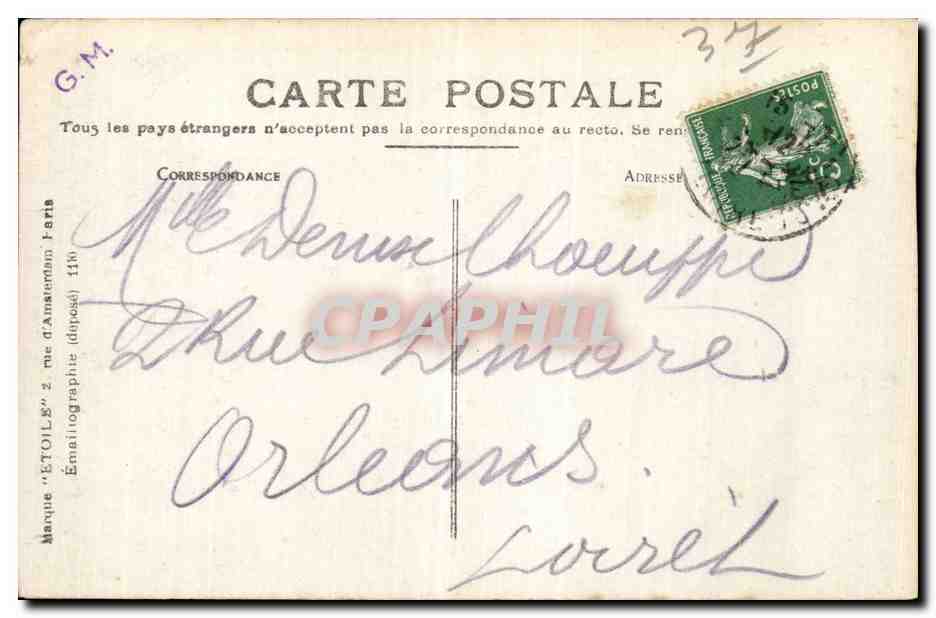 37
G. M.
CARTE POSTALE
Tous les pays étrangers n'acceptent pas la correspondance au recto. Se ren
CORRESPONDANCE
ADRESSE
REPUBLIQUE FRANÇAISE
POSTES
5c
Mlle Denise
2 Rue Limare
Orleans.
Loiret
CPAPHIL
Marque "ETOILE" 2 rue d'Amsterdam Paris
Émaillographie (déposé) 1110